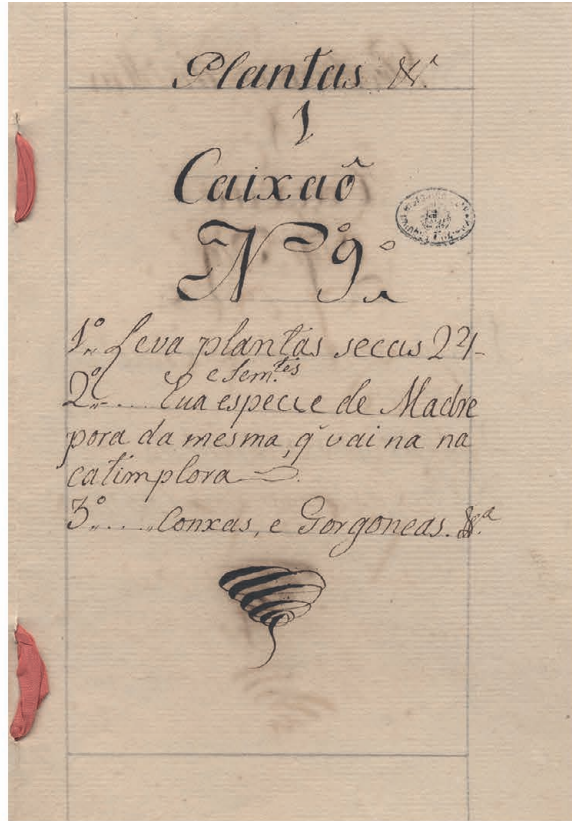 Plantas &.ª
1
Caixaõ
N.º 9.º
1.º Leva plantas secas 24
e Sem.tes
2.º .... Eua especie de Madre
pora da mesma, q̃ vai na na
catimplora
3.º .... Conxas, e Gorgoneas. &.ª